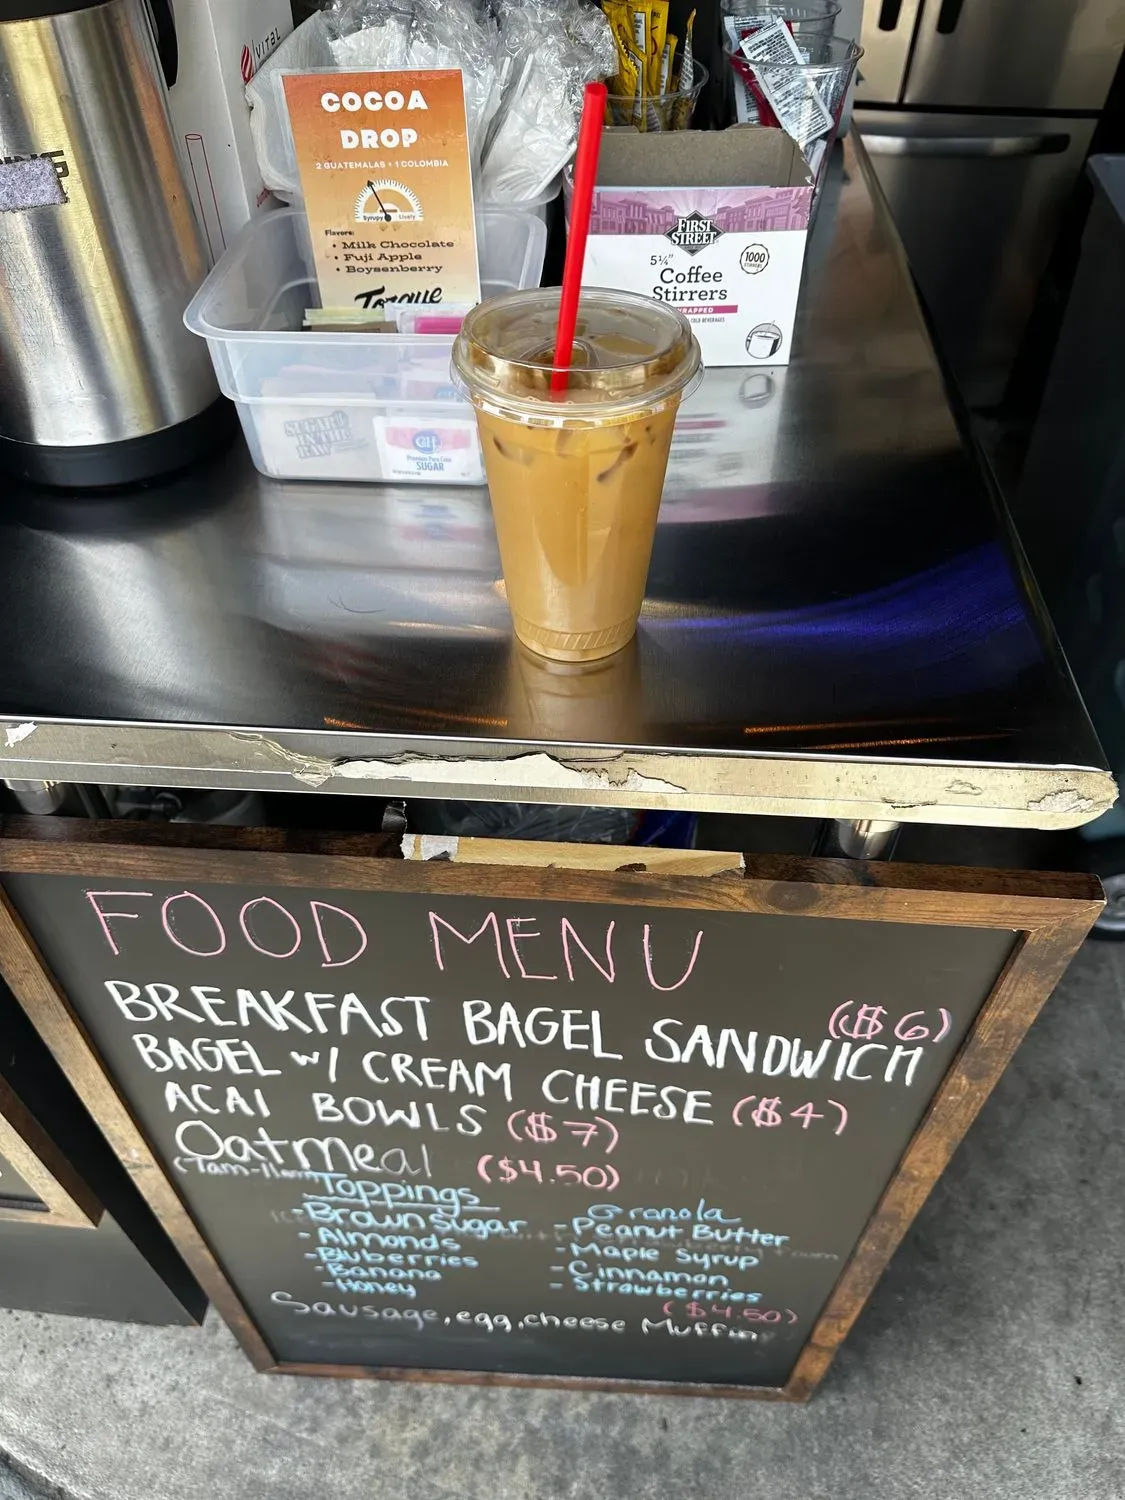 VITAL
COCOA
DROP
2 GUATEMALAS + 1 COLOMBIA
Syrupy Lively
Flavors:
• Milk Chocolate
• Fuji Apple
• Boysenberry
Torque
FIRST
STREET
5¼"
Coffee
Stirrers
WRAPPED
1000
STIRRERS
SUGAR
IN THE
RAW
C&H
Premium Pure Cane
SUGAR
FOOD MENU
BREAKFAST BAGEL SANDWICH ($6)
BAGEL w/ CREAM CHEESE ($4)
ACAI BOWLS ($7)
Oatmeal ($4.50)
(7am-11am)
Toppings
- Brown Sugar
- Almonds
- Bluberries
- Banana
- Honey
Granola
- Peanut Butter
- Maple Syrup
- Cinnamon
- Strawberries
Sausage, egg, cheese Muffin ($4.50)